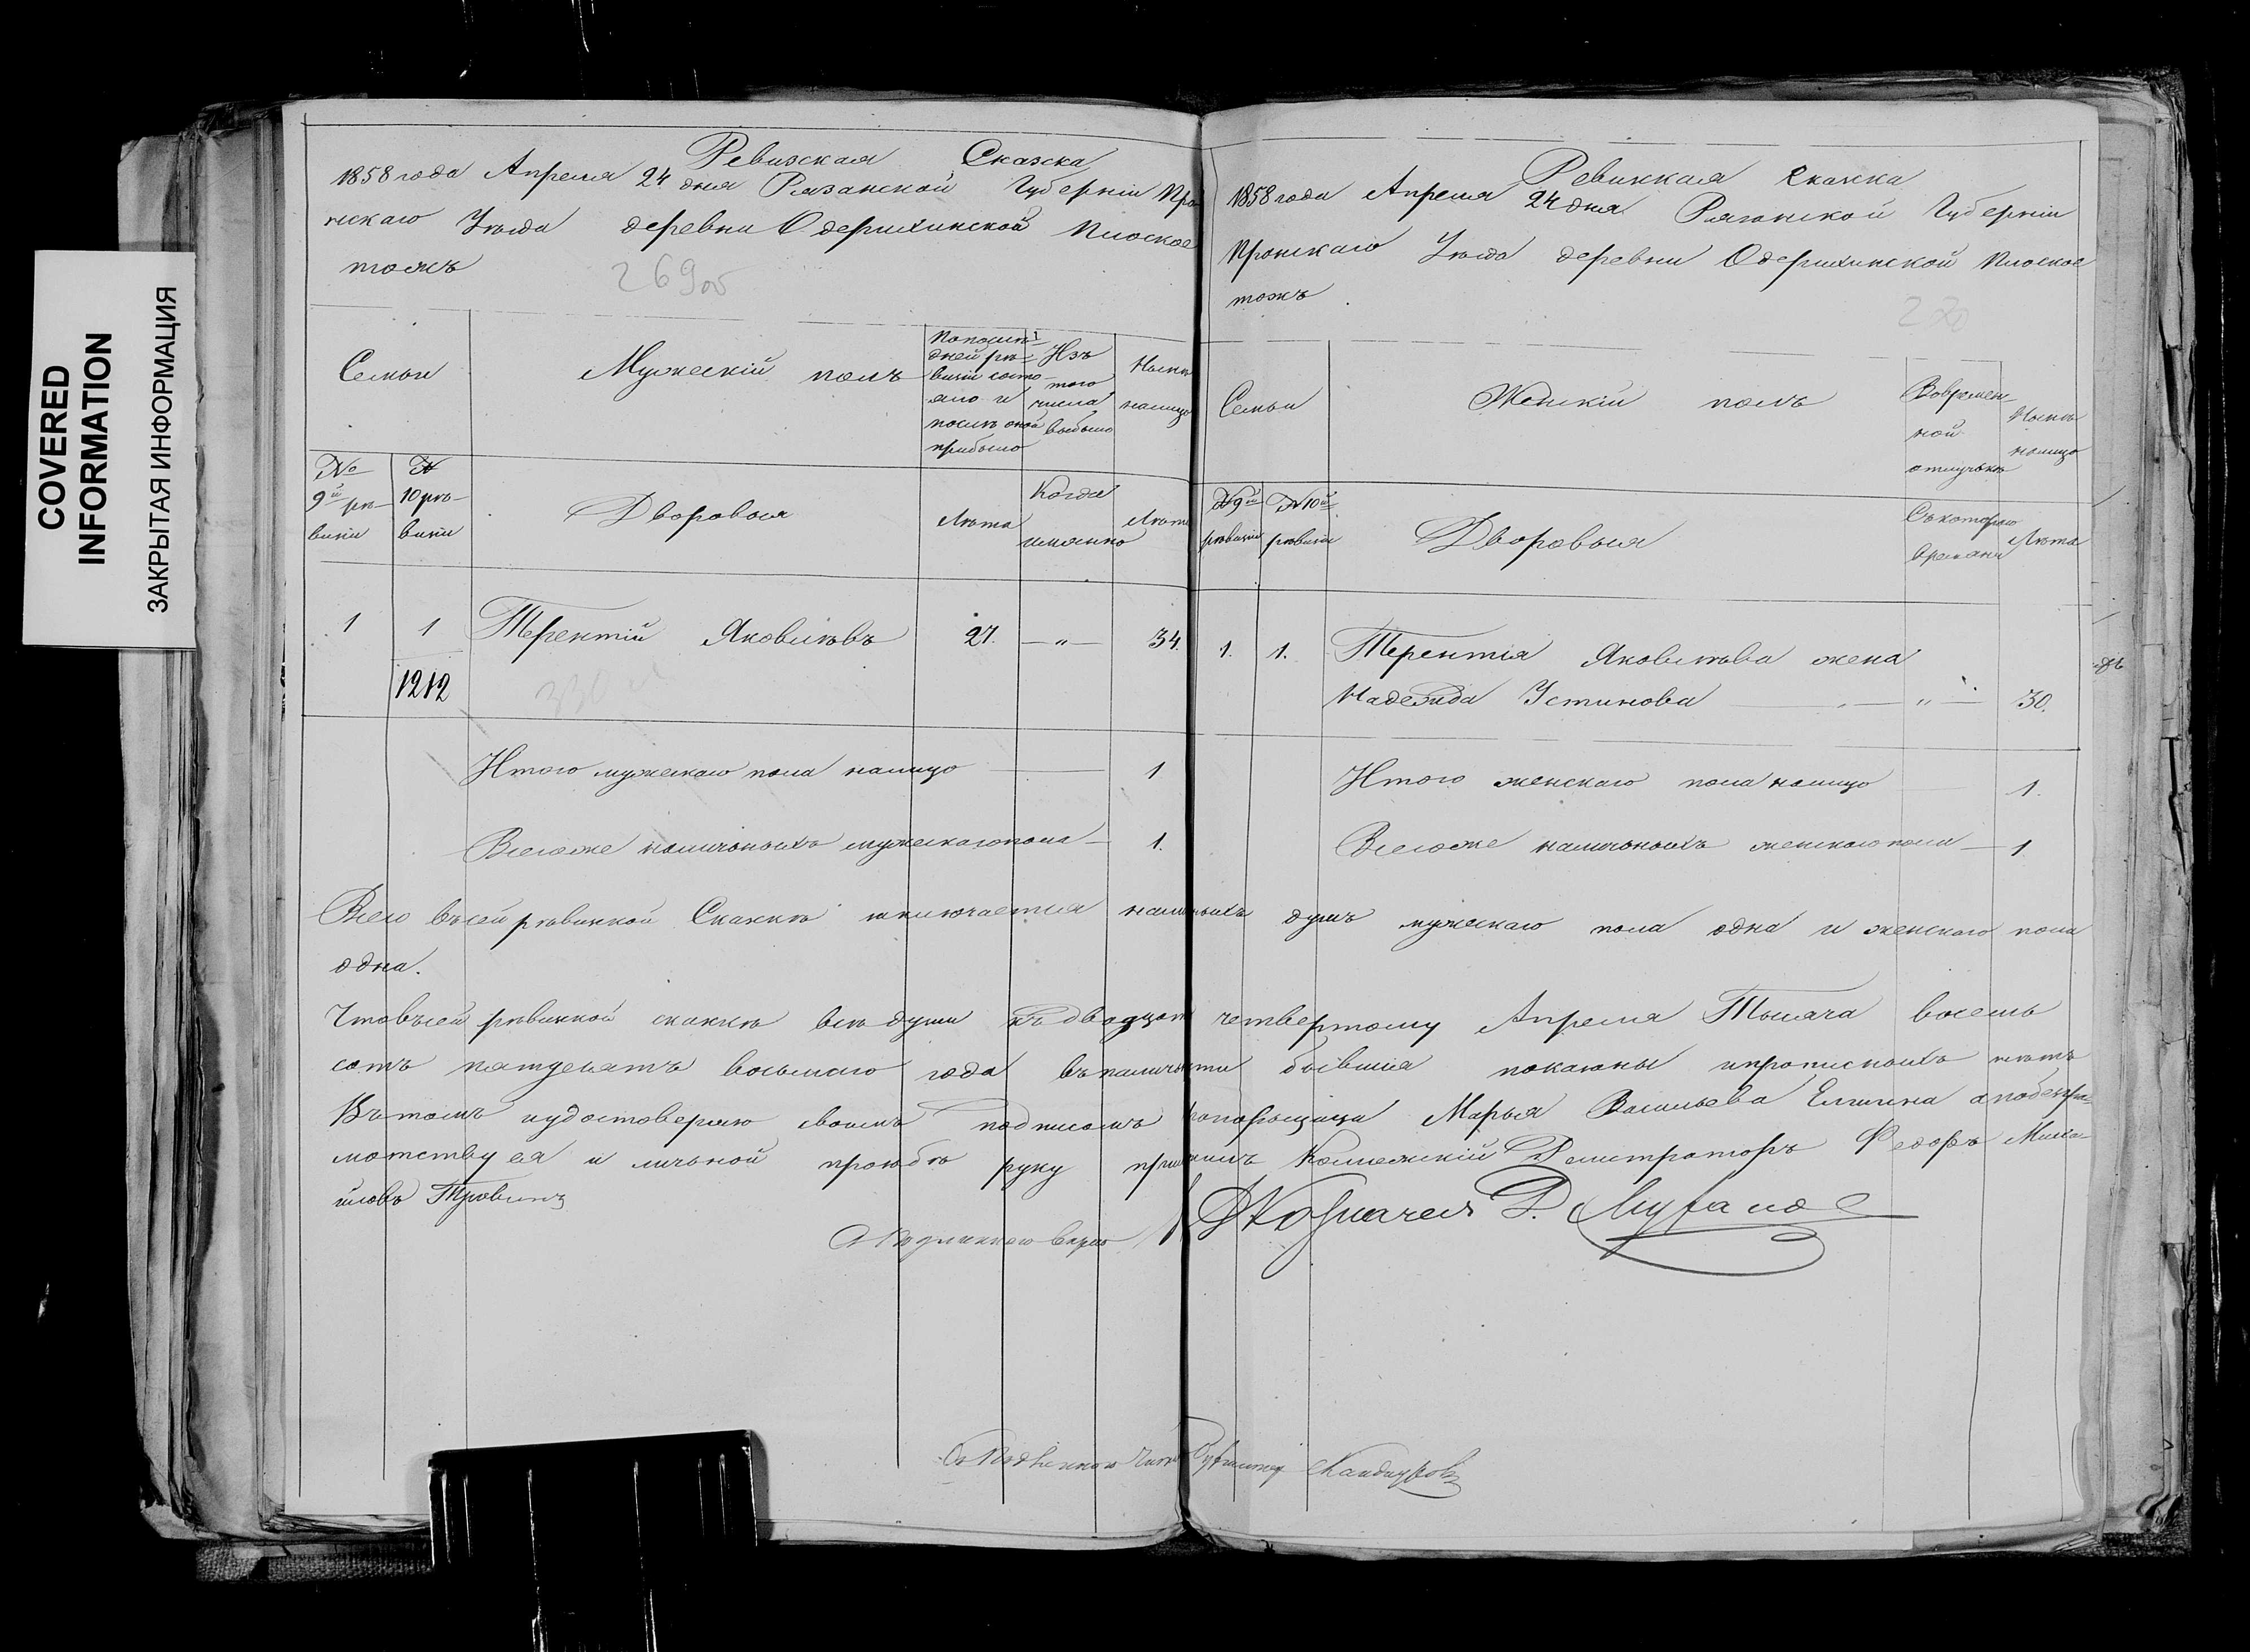 COVERED
INFORMATION
ЗАКРЫТАЯ ИНФОРМАЦИЯ
Ревизская Сказка
1858 года Апреля 24 дня Рязанской Губернiи Про
нскаго Уѣзда деревни Одерихинской Плоское
тожъ
269об
Семьи
Мужескiй полъ
Попослѣ-
дней ре-
визiи состо-
яло и
послѣ оной
прибыло
Изъ
того
числа
выбыло
Нынѣ
налицо
№
9й ре-
визiи
№
10 ре-
визiи
Дворовыя
Лѣта
Когда
имянно
Лѣта
1 1 Терентiй Яковлевъ 27. — „ — 34.
1212
Итого мужескаго пола налицо 1
Всегоже наличныхъ мужескаго пола 1.
Ревизская Сказка
1858 года Апреля 24 дня Рязанской Губернiи
Пронскаго Уѣзда деревни Одерихинской Плоское
тожъ
Семьи
Женскiй полъ
Вовремен-
ной
отлучкѣ
Нынѣ
налицо
№ 9й
ревизiи
№ 10й
ревизiи
Дворовыя
Съкотораго
времяни
Лѣта
1. 1. Терентiя Яковлева жена
Надежда Устинова — „ — 30.
Итого женскаго пола налицо 1.
Всегоже наличныхъ женскаго пола 1
Всего въсей ревизкой Сказкѣ заключается наличныхъ душъ мужескаго пола одна и женскаго пола
одна.
Чтовъсей ревизкой сказкѣ всѣ души къ двадцать четвертому Апреля Тысяча восемь
сотъ пятдесятъ восьмаго года въналичности бывшiя показаны ипрописныхъ нѣтъ
Вътомъ иудостоверяю своимъ подписомъ Марья Васильева Елшина апобезгра-
мотству ея и личьной прозьбѣ руку приложилъ Колежскiй Регистраторъ Федоръ Миха-
йловъ
Съ Подлиннымъ верно
Съ Подлиннымъ читалъ